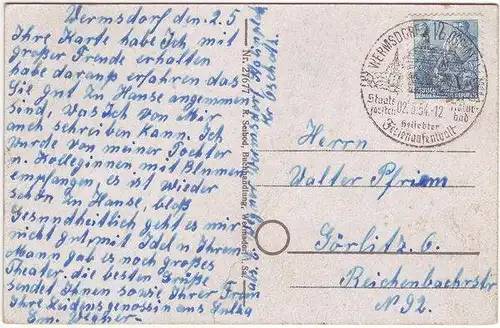 Wermsdorf den 2.5
Ihre Karte habe Ich, mit
großer Freude erhalten
habe darauß erfahren das
Sie gut zu Hause angekommen
sind, Das Ich von mir
auch schreiben kann. Ich
wurde von meiner Tochter
u. Kolleginnen mit Blumen
empfangen, es ist wieder
schön zu Hause, bloß
Gesundheitlich geht es mir
nicht gut, mit Ihren
Mann gab es noch großes
Theater. die besten Grüße
sendet Ihnen sowie Ihrer Frau
Ihre Leidensgenossin aus Sulza
Em. Wegner
Nr. 27677 R. Seibod, Buchhandlung, Wermsdorf Sa.
WERMSDORF
02.5.54.-12
Staatl.
Natur-
bad
Beliebter
Ferienaufenthalt
12
Herrn
Walter Pfriem
Görlitz. 6.
Reichenbachrstr
N 92.